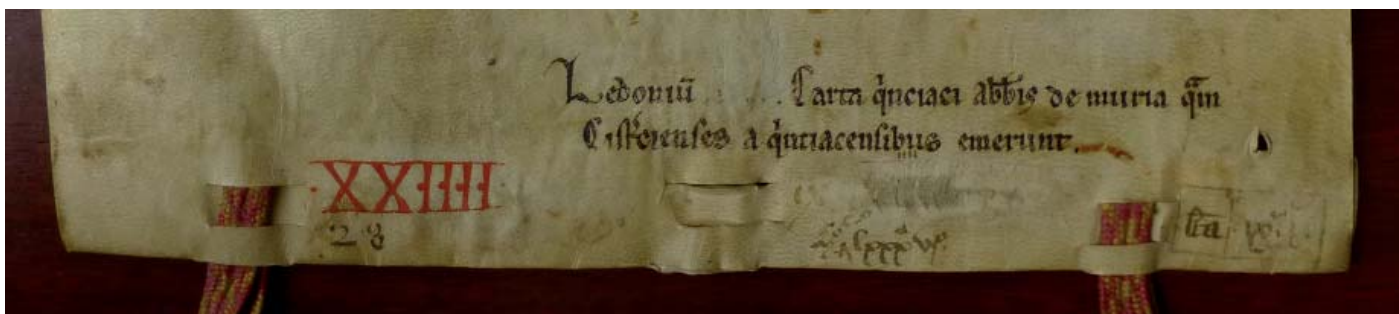 Ledoniū Carta q̇nciaci abb̅is de muria q̄m
Cist̕cienses a q̇ntiacensibus emerunt.
·XXIIII
28